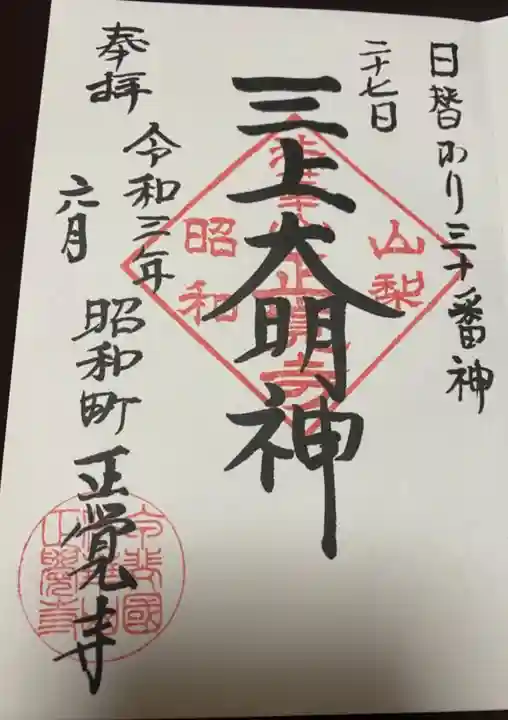 日替わり三十番神
二十七日
三上大明神
山梨
昭和
正覺寺
奉拝
令和三年
六月
昭和町 正覚寺